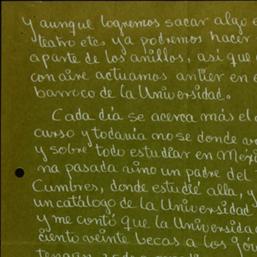 y aunque logremos sacar algo e
teatro etc, ya podremos hacer
aparte de los anillos, así que
con aire actuamos antier en e
barroco de la Universidad.
Cada día se acerca más el
curso y todavía no se donde
y sobre todo estudiar en Méxi
na pasada vino un padre del
Cumbres, donde estudié alla, y
un catálogo de la Universidad
y me contó que la Universida
ciento veinte becas a los jóv
tengan